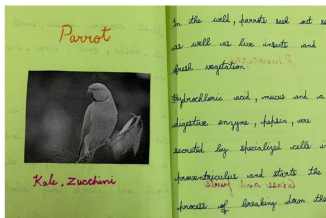 Parrot
Kale, Zucchini
In the wild, parrots seek out se
as well as live insects and
fresh vegetation.
Hydrochloric acid, mucus and a
digestive enzyme, pepsin, are
secreted by specialized cells i
proventriculus and starts the
process of breaking down the